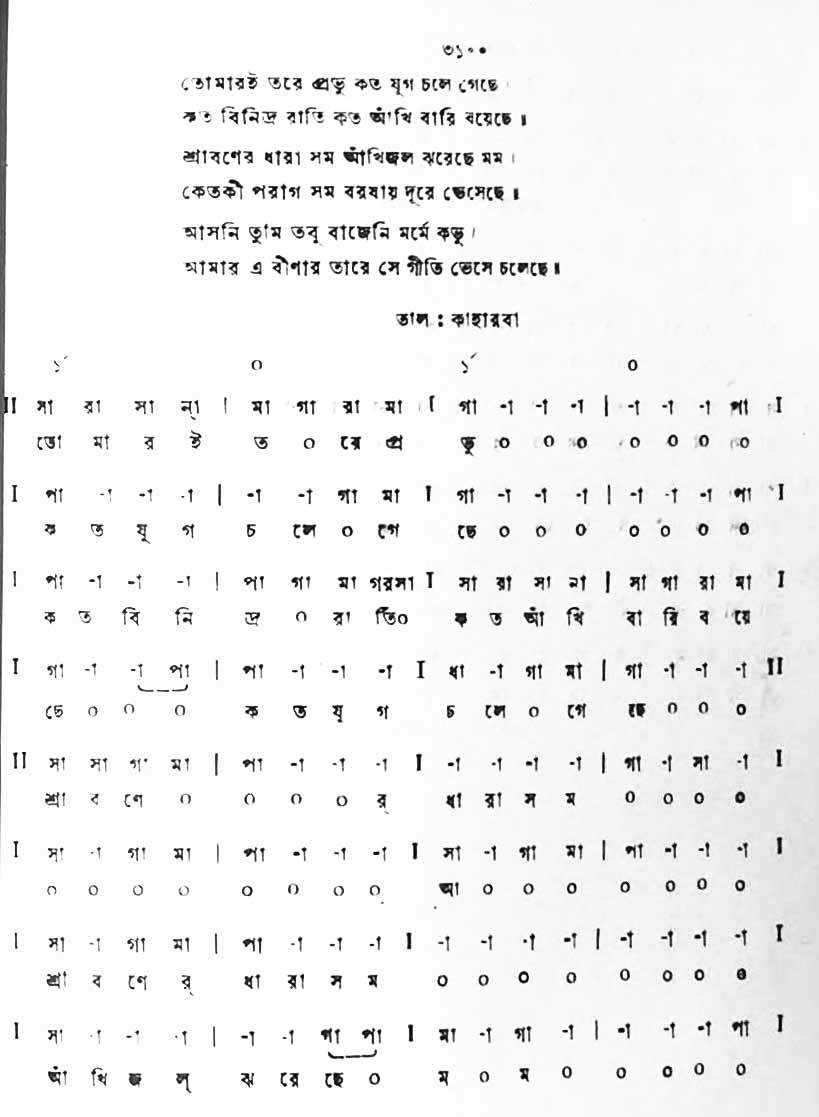 ৩১০০
তোমারই তরে প্রভু কত যুগ চলে গেছে।
কত বিনিদ্র রাতি কত আঁখি বারি বয়েছে॥
শ্রাবণের ধারা সম আঁখিজল ঝরেছে মম।
কেতকী পরাগ সম বরষায় দূরে ভেসেছে॥
আসনি তুমি তবু বাজেনি মর্মে কভু।
আমার এ বীণার তারে সে গীতি ভেসে চলেছে॥
তাল : কাহারবা
১´ ০ ১´ ০
II সা রা সা ন্া | মা গা রা মা I গা -া -া -া | -া -া -া পা I
তো মা র ই ত ০ রে প্র ভু ০ ০ ০ ০ ০ ০ ০
I পা -া -া -া | -া -া গা মা I গা -া -া -া | -া -া -া পা I
ক ত যু গ চ লে ০ গে ছে ০ ০ ০ ০ ০ ০ ০
I পা -া -া -া | পা গা মা গরসা I সা রা সা না | সা গা রা মা I
ক ত বি নি দ্র ০ রা তি০ ক ত আঁ খি বা রি ব য়ে
I গা -া -া পা | পা -া -া -া I ধা -া গা মা | গা -া -া -া II
ছে ০ ০ ০ ক ত যু গ চ লে ০ গে ছে ০ ০ ০
II সা সা গা মা | পা -া -া -া I -া -া -া -া | গা -া সা -া I
শ্রা ব ণে ০ ০ ০ ০ র্ ধা রা স ম ০ ০ ০ ০
I সা -া গা মা | পা -া -া -া I সা -া গা মা | পা -া -া -া I
০ ০ ০ ০ ০ ০ ০ ০ আ ০ ০ ০ ০ ০ ০ ০
I সা -া গা মা | পা -া -া -া I -া -া -া -া | -া -া -া -া I
শ্রা ব ণে র্ ধা রা স ম ০ ০ ০ ০ ০ ০ ০ ০
I সা -া -া -া | -া -া গা পা I মা -া গা -া | -া -া -া পা I
আঁ খি জ ল্ ঝ রে ছে ০ ম ০ ম ০ ০ ০ ০ ০